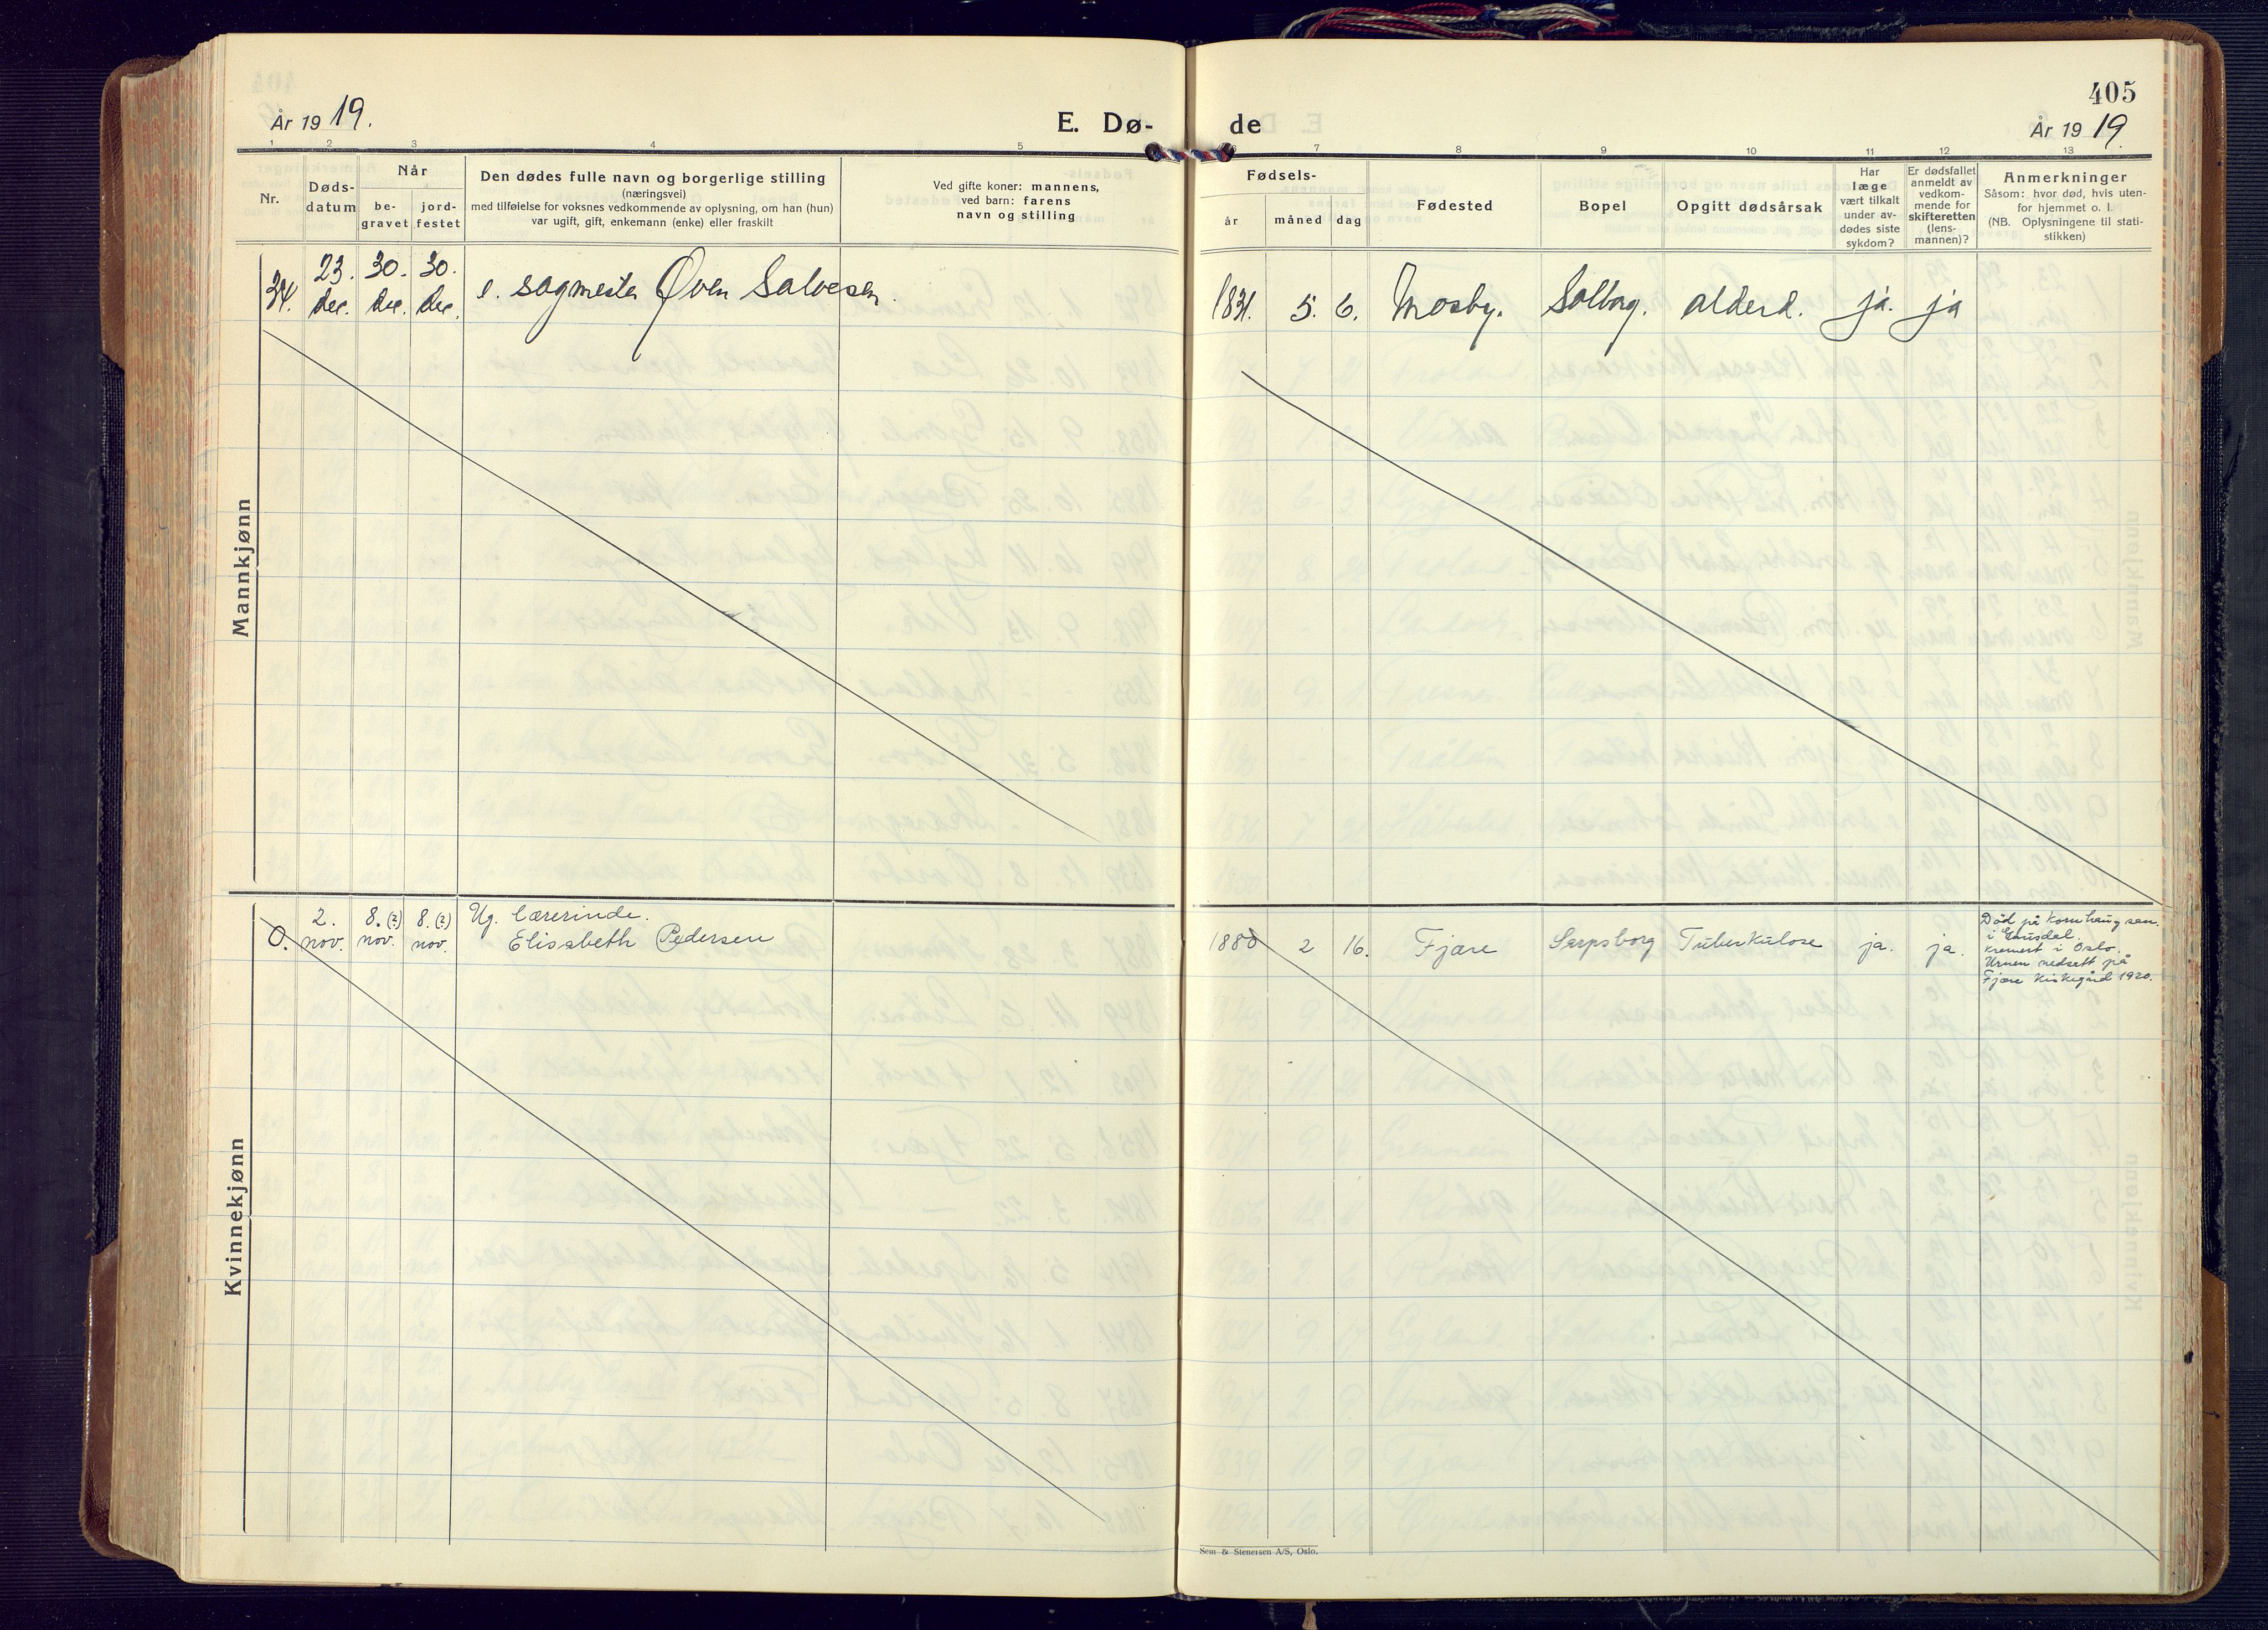 405
År 1919.
E. Dø-
de
År 1919.
1 2 3 4 5
7 8 9 10 11 12 13
Nr.
Døds-
datum
Når
be-
gravet
jord-
festet
Den dødes fulle navn og borgerlige stilling
(næringsvei)
med tilføielse for voksnes vedkommende av oplysning, om han (hun)
var ugift, gift, enkemann (enke) eller fraskilt
Ved gifte koner: mannens,
ved barn: farens
navn og stilling
Fødsels-
år
måned
dag
Fødested
Bopel
Opgitt dødsårsak
Har
læge
vært tilkalt
under av-
dødes siste
sykdom?
Er dødsfallet
anmeldt av
vedkom-
mende for
skifteretten
(lens-
mannen)?
Anmerkninger
Såsom: hvor død, hvis uten-
for hjemmet o. l.
(NB. Oplysningene til stati-
stikken)
Mannkjønn
34. 23. dec. 30. dec. 30. dec. e. sagmester Øven Salvesen. 1831. 5. 6. Mosby. Solborg. alderd. ja. ja
Kvinnekjønn
0. 2. nov. 8.(?) nov. 8.(?) nov. Ug. lærerinde.
Elisabeth Pedersen 1880 2 16. Fjære Sarpsborg Tuberkulose ja. ja.
Død på Kornhaug san.
i Gausdal.
Kremert i Oslo.
Urnen nedsatt på
Fjære Kirkegård 1920.
Sem & Stenersen A/S, Oslo.